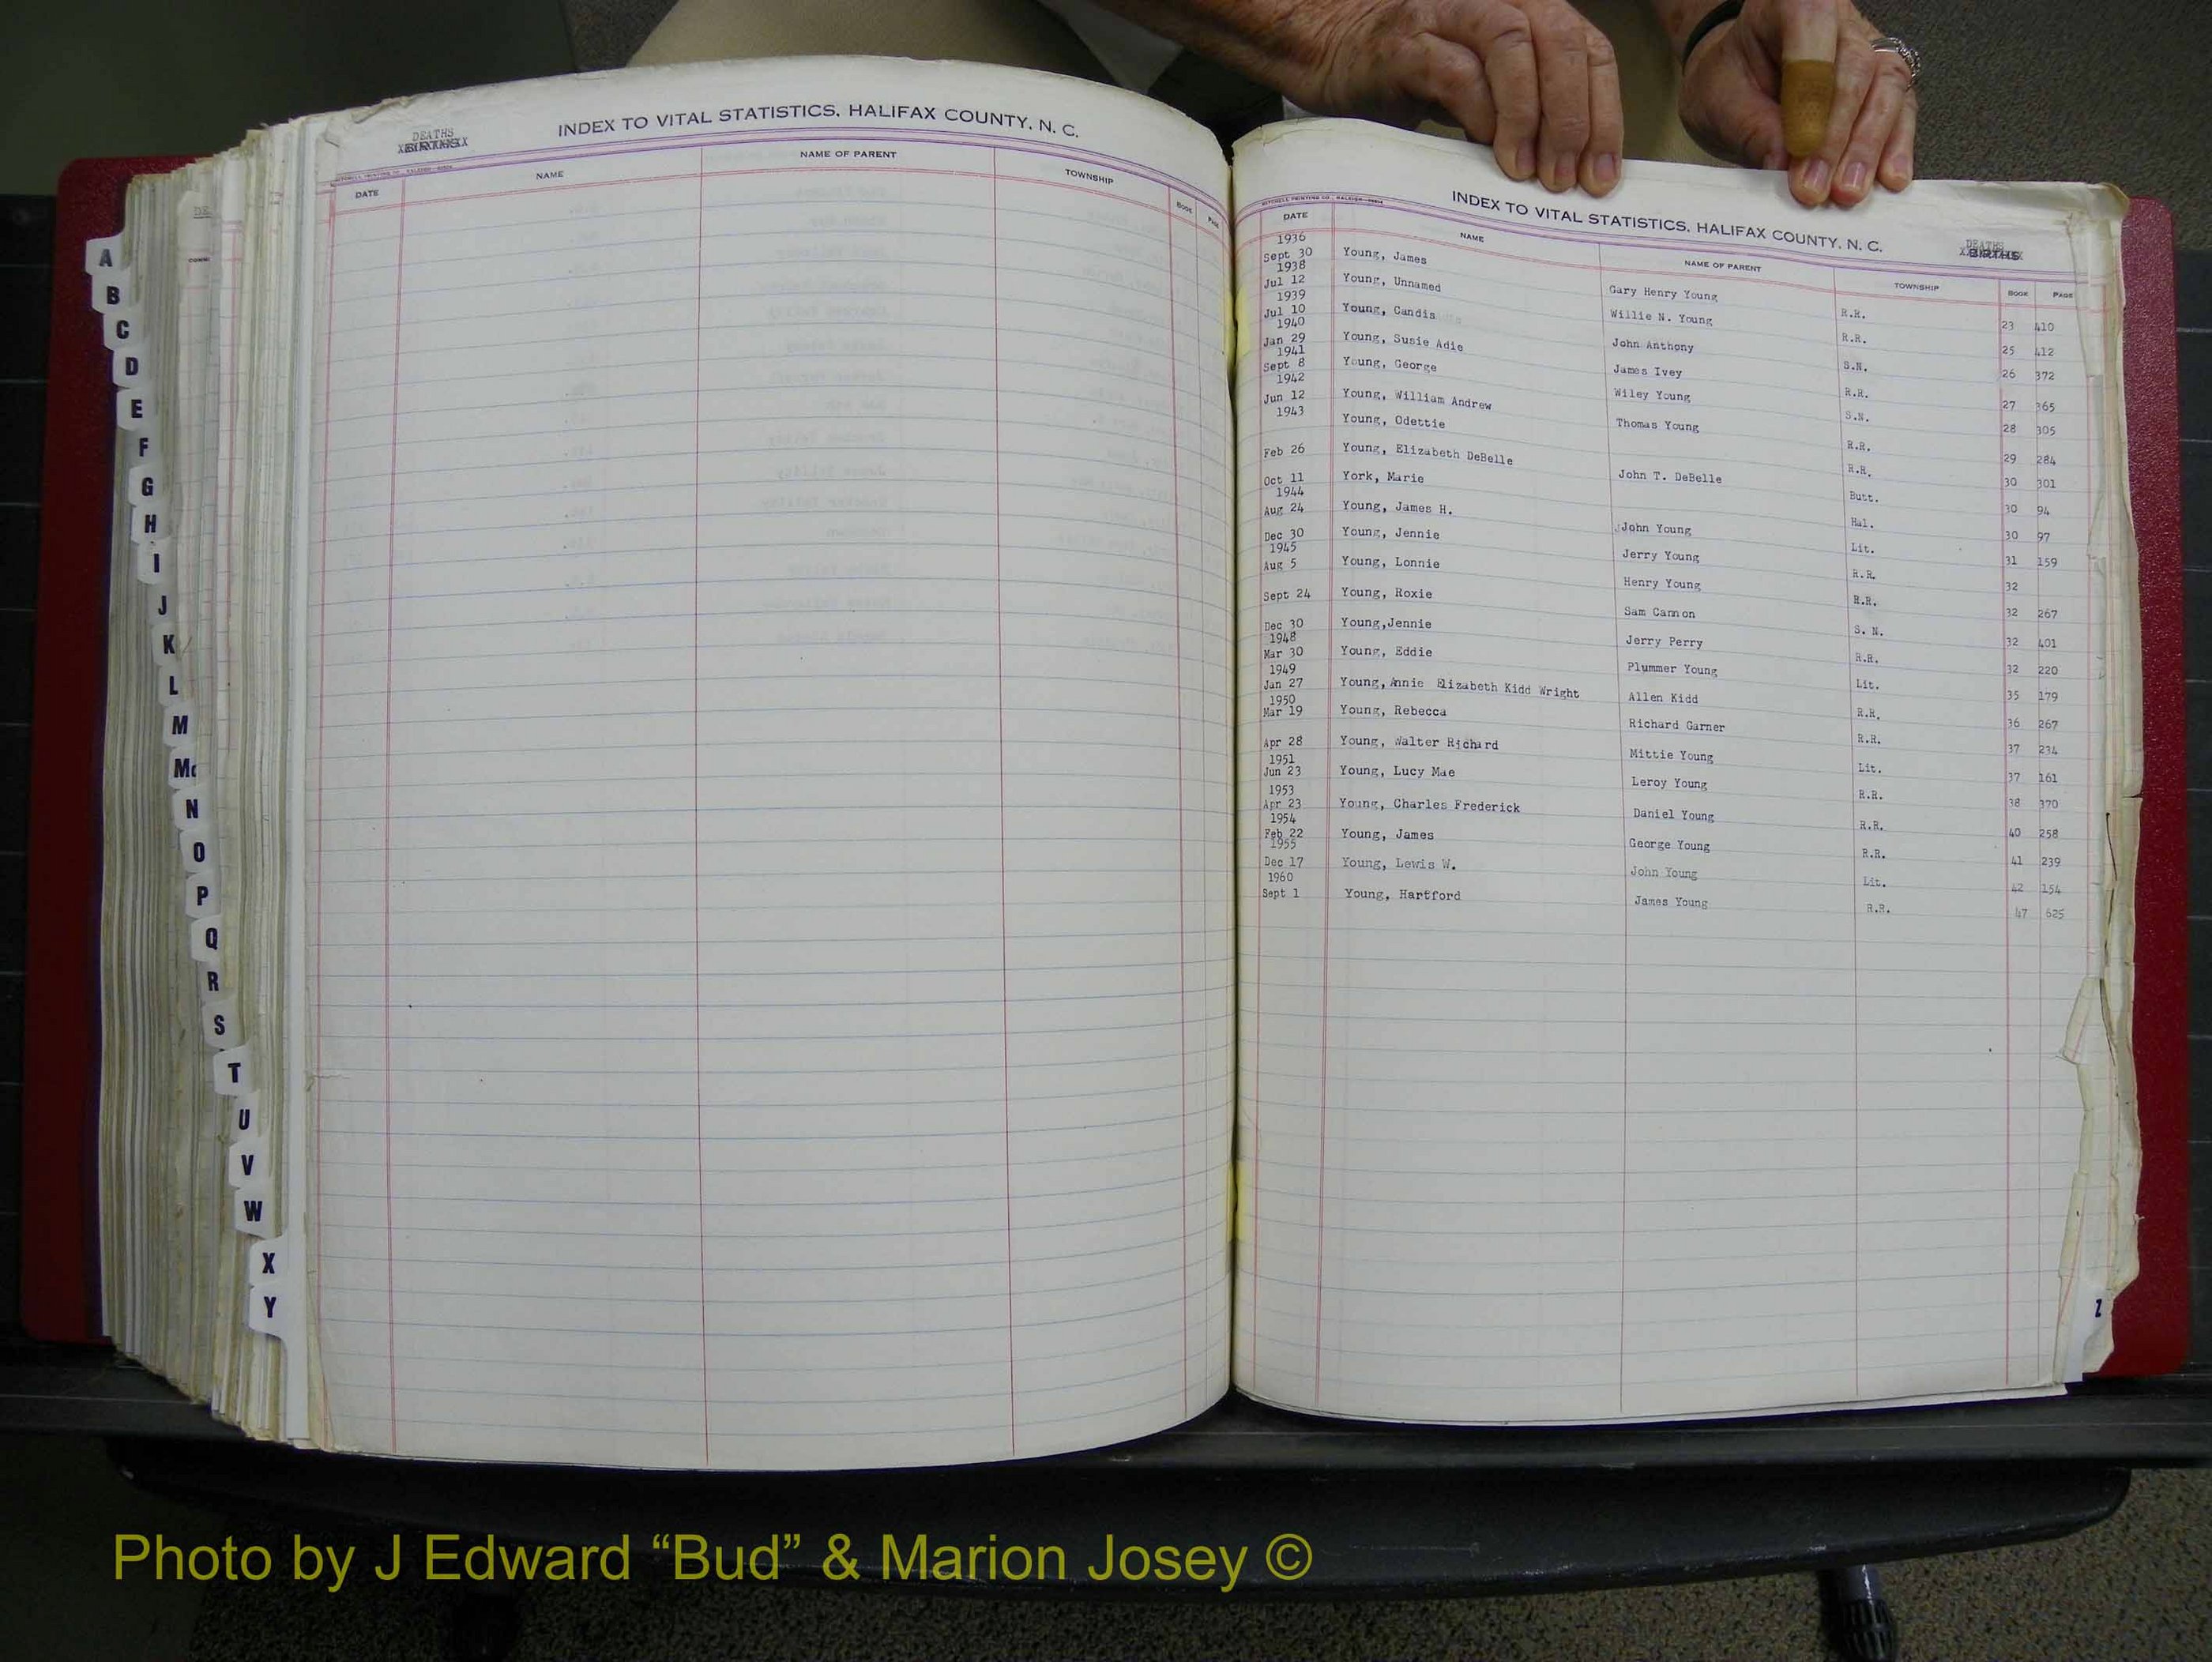 DEATHS
BIRTHS
INDEX TO VITAL STATISTICS, HALIFAX COUNTY, N. C.
DATE NAME NAME OF PARENT TOWNSHIP BOOK PAGE
A
B
C
D
E
F
G
H
I
J
K
L
M
Mc
N
O
P
Q
R
S
T
U
V
W
X
Y
MITCHELL PRINTING CO., RALEIGH
INDEX TO VITAL STATISTICS, HALIFAX COUNTY, N. C.
DEATHS
BIRTHS
DATE NAME NAME OF PARENT TOWNSHIP BOOK PAGE
1936
Sept 30 Young, James Gary Henry Young R.R. 23 410
1938
Jul 12 Young, Unnamed Willie N. Young R.R. 25 412
1939
Jul 10 Young, Candis John Anthony S.N. 26 372
1940
Jan 29 Young, Susie Adie James Ivey R.R. 27 365
1941
Sept 8 Young, George Wiley Young S.N. 28 305
1942
Jun 12 Young, William Andrew Thomas Young R.R. 29 284
1943
Young, Odettie R.R. 30 301
Feb 26 Young, Elizabeth DeBelle John T. DeBelle Butt. 30 94
Oct 11 York, Marie Hal. 30 97
1944
Aug 24 Young, James H. John Young Lit. 31 159
Dec 30 Young, Jennie Jerry Young R.R. 32
1945
Aug 5 Young, Lonnie Henry Young R.R. 32 267
Sept 24 Young, Roxie Sam Cannon S. N. 32 401
Dec 30 Young,Jennie Jerry Perry R.R. 32 220
1948
Mar 30 Young, Eddie Plummer Young Lit. 35 179
1949
Jan 27 Young, Annie Elizabeth Kidd Wright Allen Kidd R.R. 36 267
1950
Mar 19 Young, Rebecca Richard Garner R.R. 37 234
Apr 28 Young, Walter Richard Mittie Young Lit. 37 161
1951
Jun 23 Young, Lucy Mae Leroy Young R.R. 38 370
1953
Apr 23 Young, Charles Frederick Daniel Young R.R. 40 258
1954
Feb 22 Young, James George Young R.R. 41 239
1955
Dec 17 Young, Lewis W. John Young Lit. 42 154
1960
Sept 1 Young, Hartford James Young R.R. 47 625
Z
Photo by J Edward “Bud” & Marion Josey ©